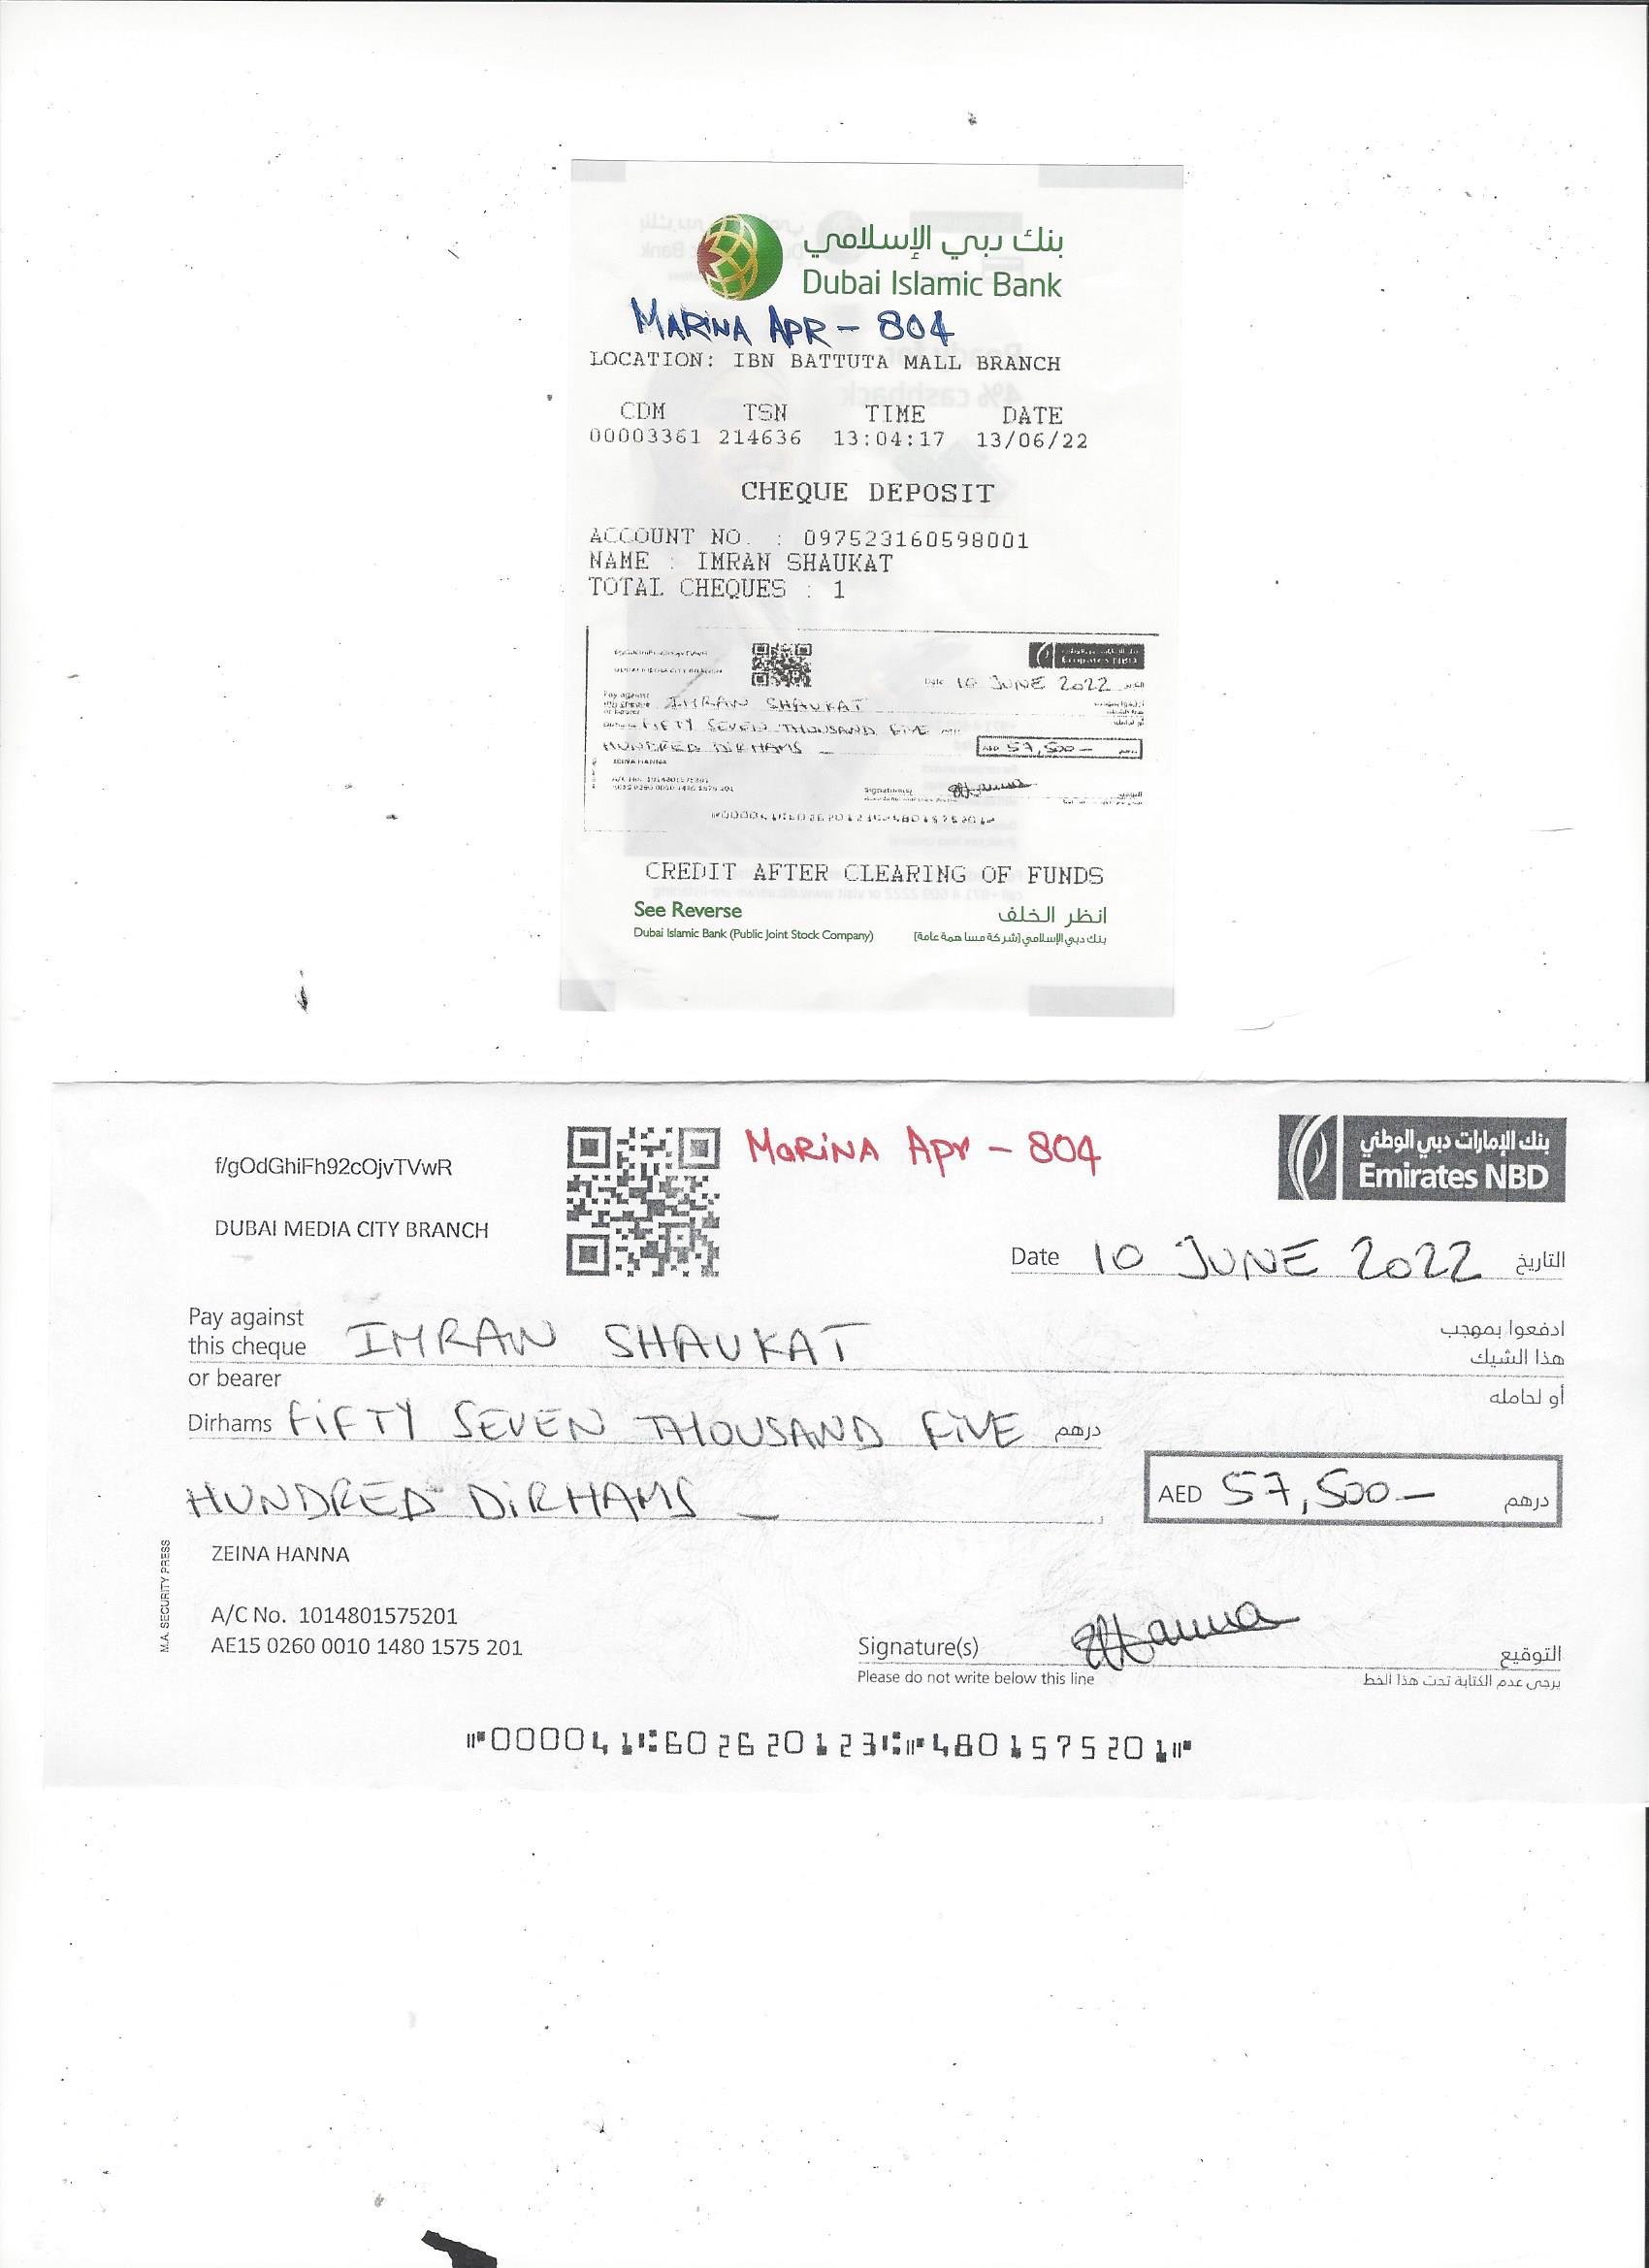 بنك دبي الإسلامي
Dubai Islamic Bank
MARINA APR - 804
LOCATION: IBN BATTUTA MALL BRANCH
CDM TSN TIME DATE
00003361 214636 13:04:17 13/06/22
CHEQUE DEPOSIT
ACCOUNT NO. : 097523160598001
NAME : IMRAN SHAUKAT
TOTAL CHEQUES : 1
Emirates NBD
Date 10 JUNE 2022
Pay against
this cheque IMRAN SHAUKAT
or bearer
FIFTY SEVEN THOUSAND FIVE
HUNDRED DIRHAMS -
AED 57,500-
ZEINA HANNA
Signature(s)
CREDIT AFTER CLEARING OF FUNDS
See Reverse انظر الخلف
Dubai Islamic Bank (Public Joint Stock Company) بنك دبي الإسلامي (شركة مساهمة عامة)
f/gOdGhiFh92cOjvTVwR
MARINA Apr - 804
بنك الإمارات دبي الوطني
Emirates NBD
DUBAI MEDIA CITY BRANCH
Date 10 JUNE 2022 التاريخ
Pay against ادفعوا بموجب
this cheque IMRAN SHAUKAT هذا الشيك
or bearer أو لحامله
Dirhams FIFTY SEVEN THOUSAND FIVE درهم
HUNDRED DIRHAMS -
AED 57,500- درهم
M.A. SECURITY PRESS
ZEINA HANNA
A/C No. 1014801575201
AE15 0260 0010 1480 1575 201
Signature(s) ZHanna التوقيع
Please do not write below this line يرجى عدم الكتابة تحت هذا الخط
⑈000041⑆602620123⑆⑈4801575201⑈